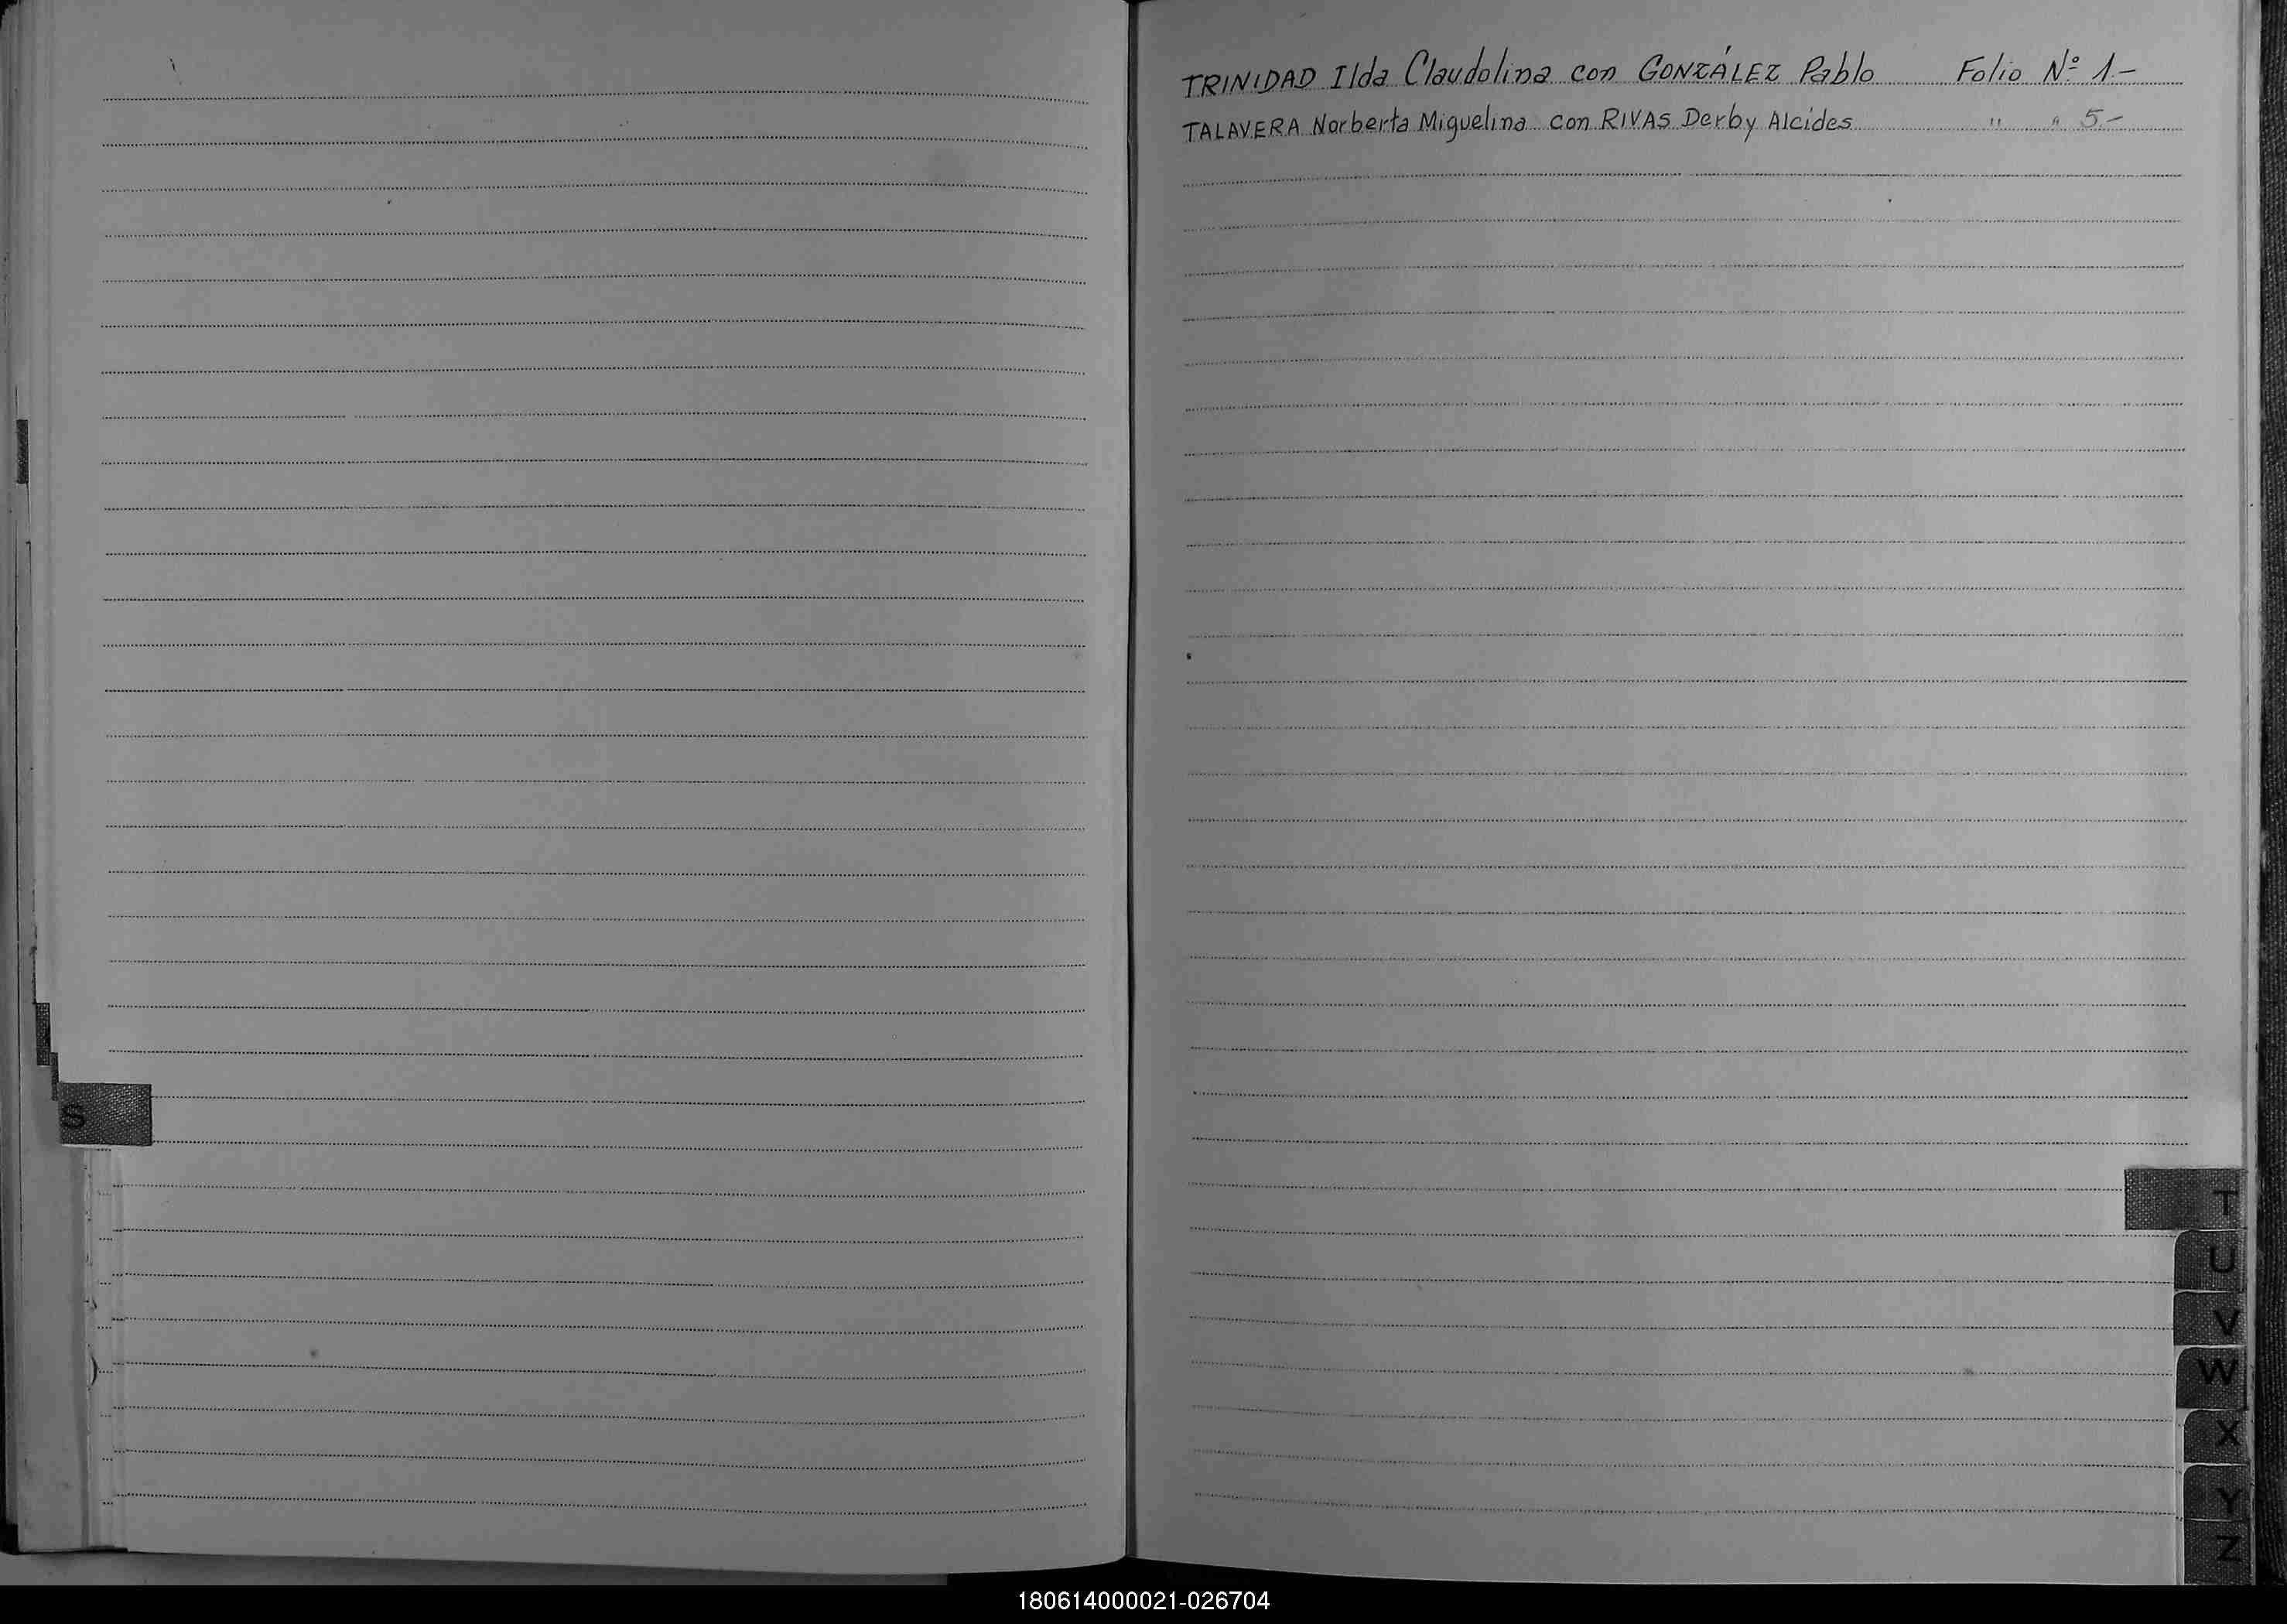 TRINIDAD Ilda Claudolina con GONZÁLEZ Pablo Folio Nº 1.-
TALAVERA Norberta Miguelina con RIVAS Derby Alcides " " 5.-
S
T
U
V
W
X
Y
Z
180614000021-026704